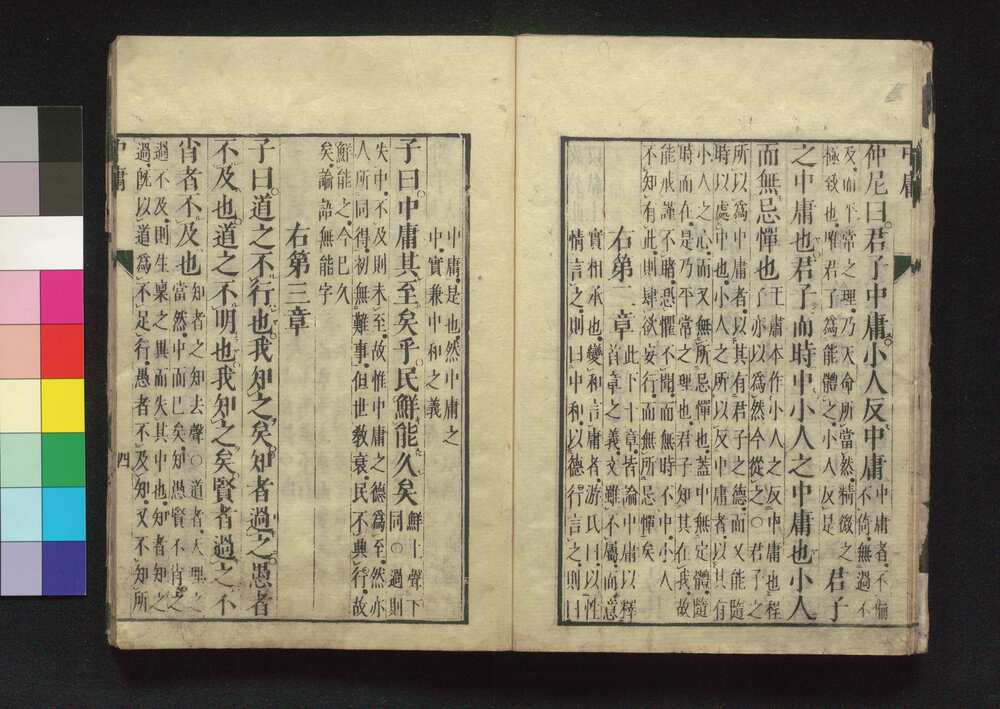 中庸
仲尼曰君子中庸小人反中庸
中庸者不偏
不倚無過不
及而平常之理乃天命所當然精微之
極致也唯君子爲能體之小人反是
君子
之中庸也君子而時中小人之中庸也小人
而無忌憚也
王肅本作小人之反中庸也程
子亦以爲然今從之○君子之
所以爲中庸者以其有君子之德而又能隨
時以處中也小人之所以反中庸者以其有
小人之心而又無所忌憚也蓋中無定體隨
時而在是乃平常之理也君子知其在我故
能戒謹不睹恐懼不聞而無時不中小人
不知有此則肆欲妄行而無所忌憚矣
右第二章
此下十章皆論中庸以釋
首章之義文雖不屬而意
實相承也變和言庸者游氏曰以性
情言之則曰中和以德行言之則曰
中庸是也然中庸之
中實兼中和之義
子曰中庸其至矣乎民鮮能久矣
鮮上聲下
同○過則
失中不及則未至故惟中庸之德爲至然亦
人所同得初無難事但世教衰民不興行故
鮮能之今已久
矣論語無能字
右第三章
子曰道之不行也我知之矣知者過之愚者
不及也道之不明也我知之矣賢者過之不
肖者不及也
知者之知去聲○道者天理之
當然中而已矣知愚賢不肖之
過不及則生稟之異而失其中也知者知之
過既以道爲不足行愚者不及知又不知所
中庸
四